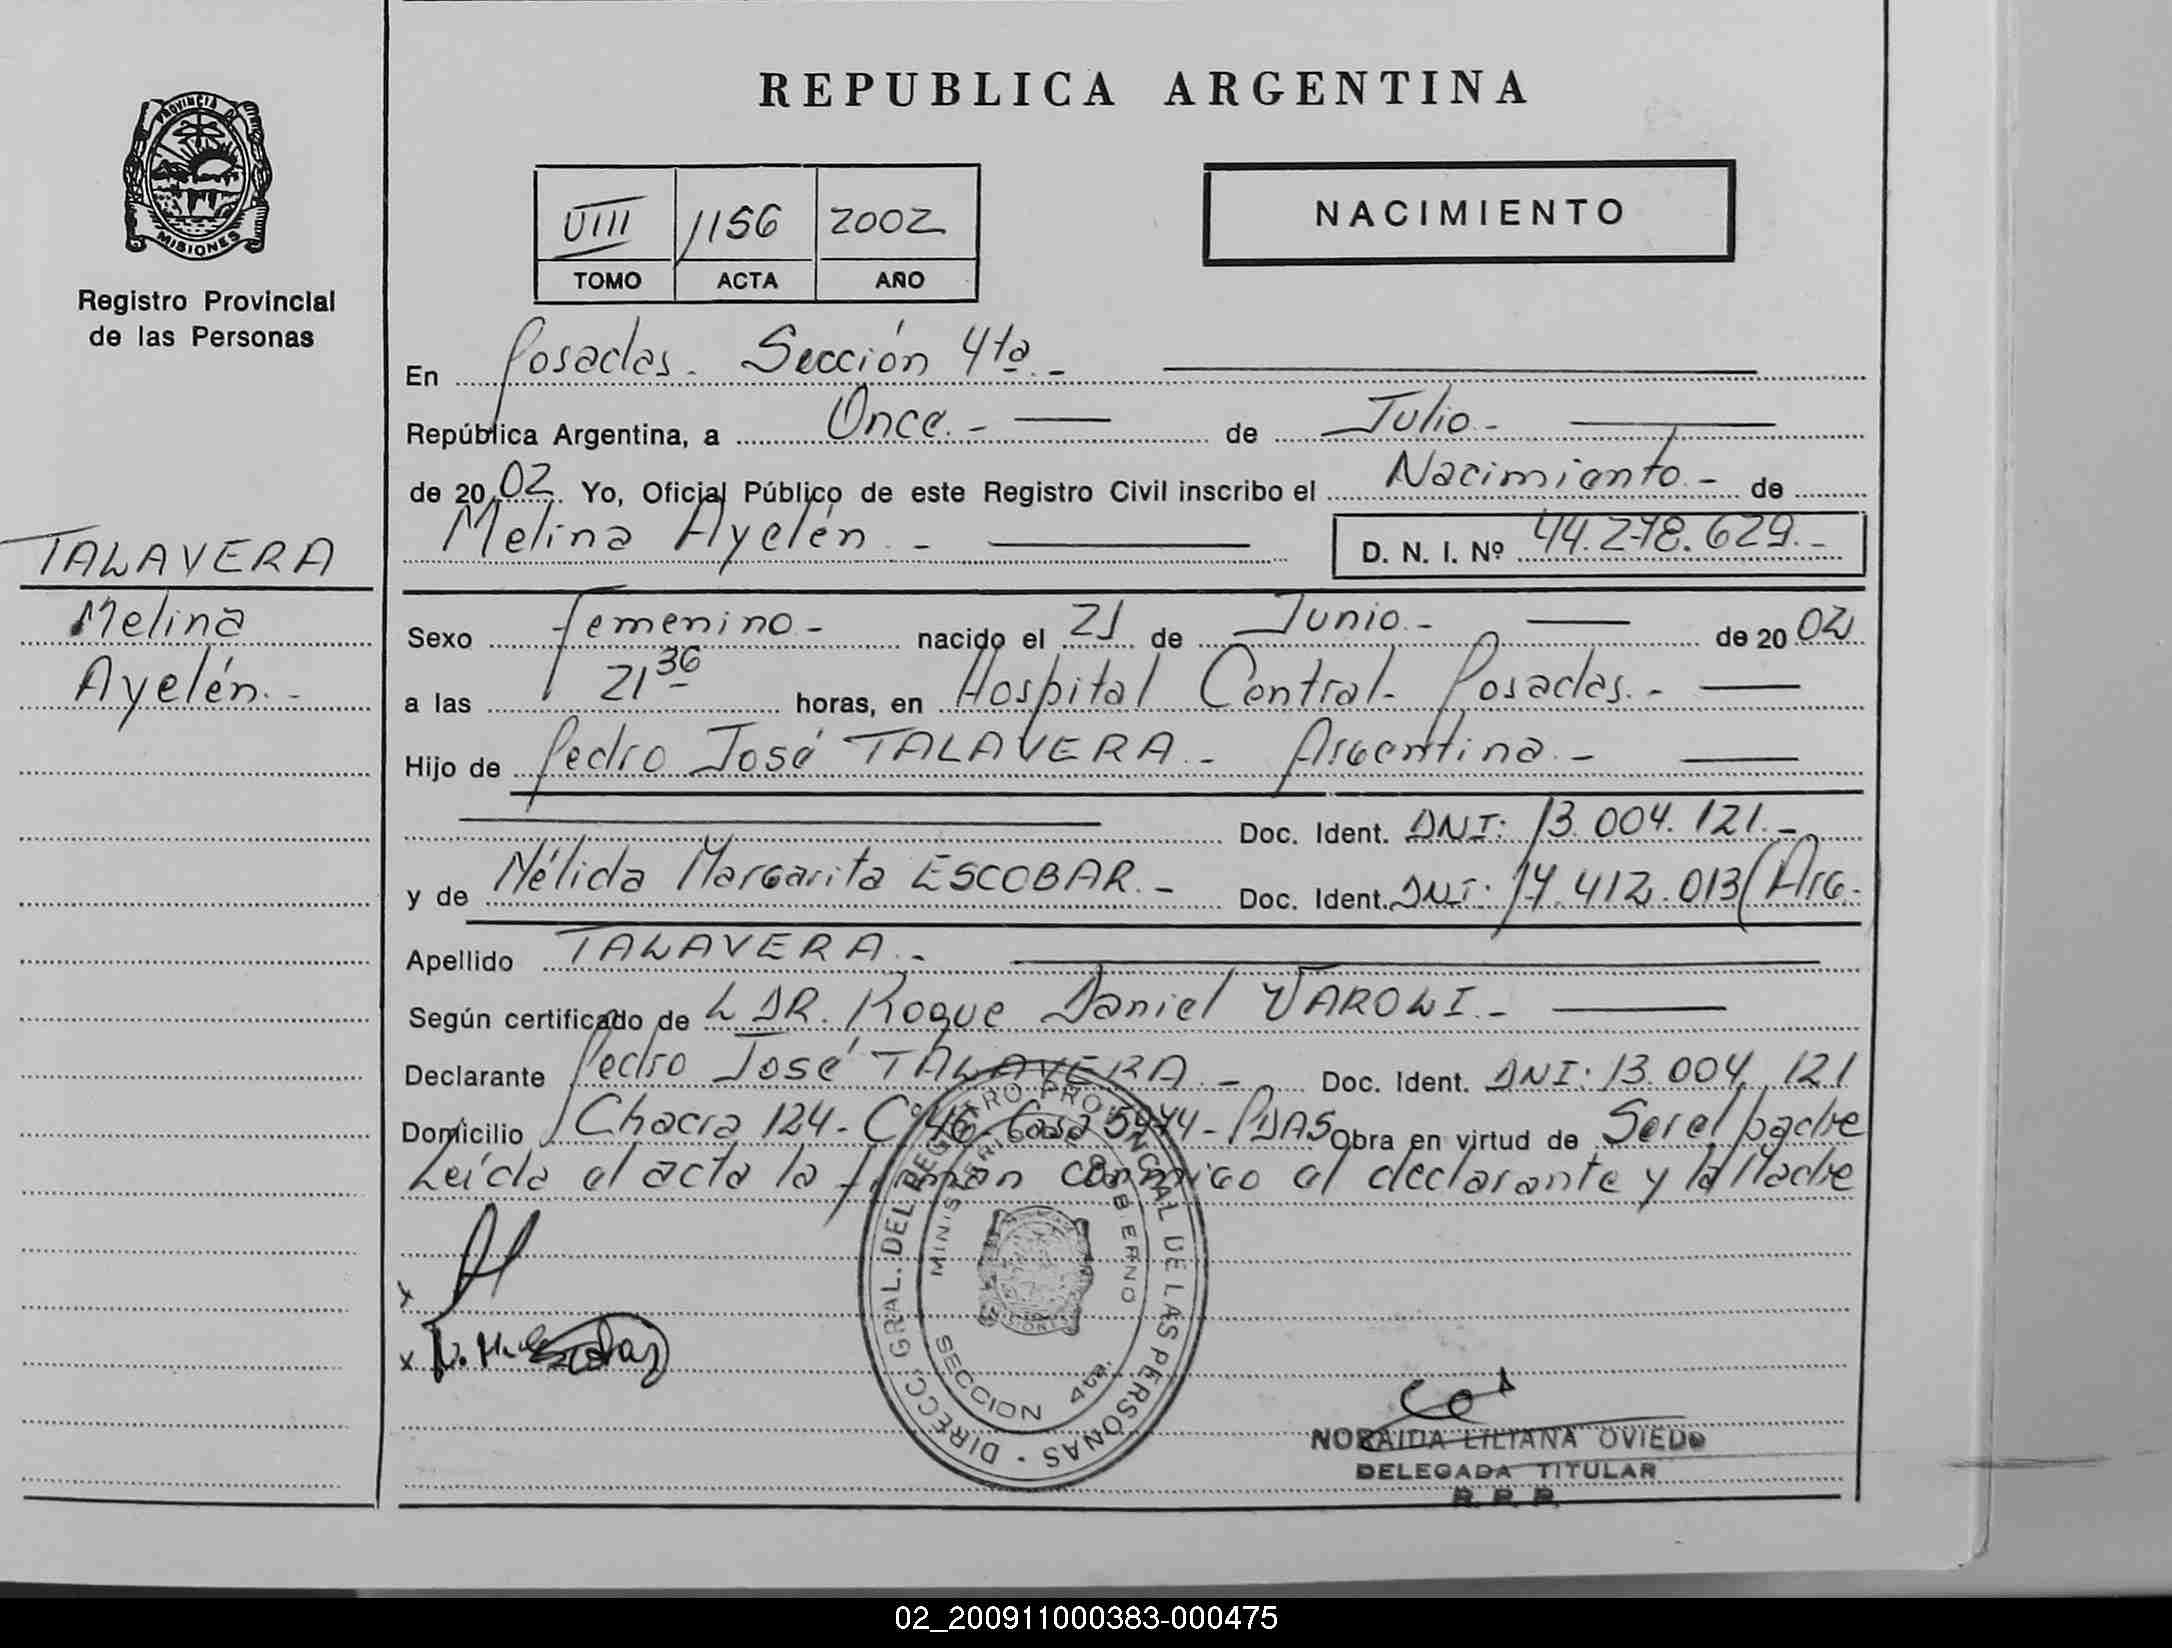 REPUBLICA ARGENTINA
PROVINCIA DE MISIONES
Registro Provincial
de las Personas
VIII 1156 2002
TOMO ACTA AÑO
NACIMIENTO
En Posadas. Sección 4ta.-
República Argentina, a Once.- de Julio.-
de 2002. Yo, Oficial Público de este Registro Civil inscribo el Nacimiento.- de
Melina Ayelén.- D. N. I. Nº 44.278.629.-
TALAVERA
Melina
Ayelén.-
Sexo Femenino.- nacido el 21 de Junio.- de 2002
a las 21 36 horas, en Hospital Central- Posadas.-
Hijo de Pedro José TALAVERA.- Argentina.-
Doc. Ident. DNI: 13.004.121.-
y de Nélida Margarita ESCOBAR.- Doc. Ident. DNI: 17.412.013 (Arg.
Apellido TALAVERA.-
Según certificado de L DR. Roque Daniel VAROLI.-
Declarante Pedro José TALAVERA.- Doc. Ident. DNI: 13.004.121
Domicilio Chacra 124- C/46- Casa 5974- PDAS Obra en virtud de Ser el padre
Leída el acta la firman conmigo el declarante y la Madre
x
x
DIRECC. GRAL. DEL REGISTRO PROVINCIAL DE LAS PERSONAS
MINISTERIO DE GOBIERNO
SECCION 4ta.
NORAIDA LILIANA OVIEDO
DELEGADA TITULAR
R. P. P.
02_200911000383-000475